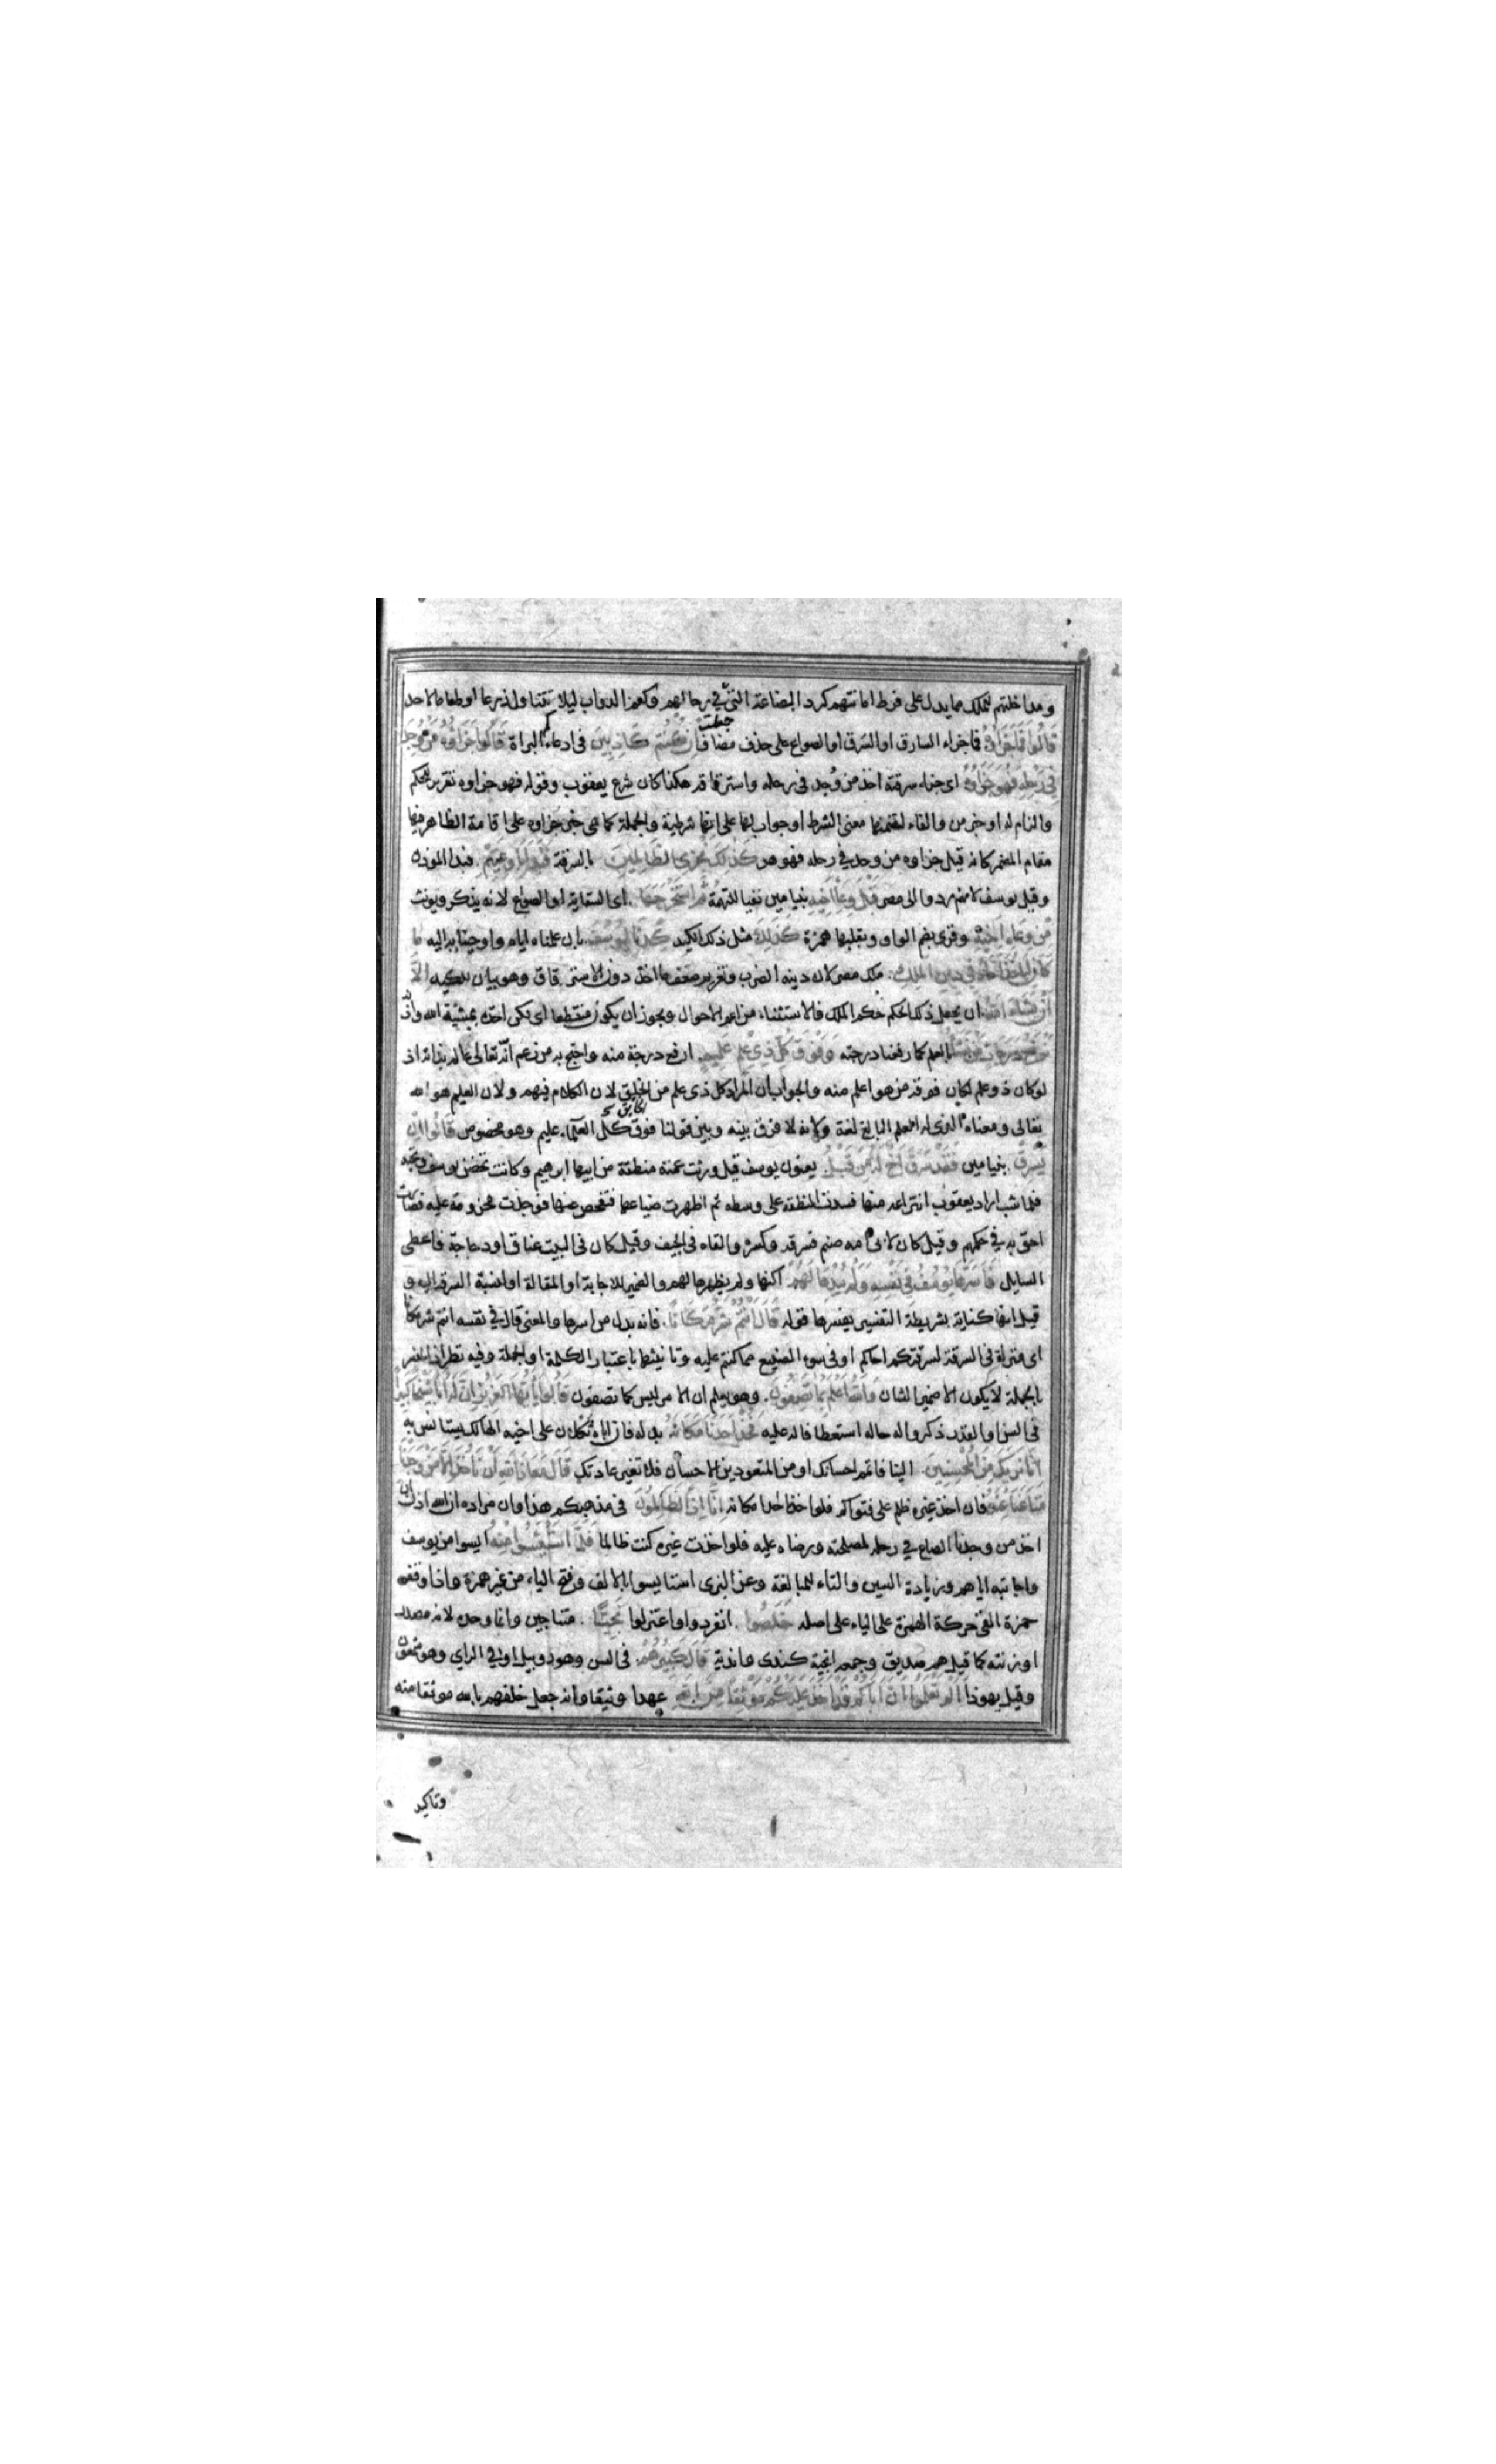 ومداخلتهم للملك مما يدل على فرط امانتهم كرد البضاعة التي في رحالهم وكعم الدواب ليلا تتناول زرعا او طعاما لاحد
قَالُوا فَمَا جَزَاؤُهُ فما جزاء السارق او السَرَق او الصواع على حذف مضاف اِنْ كُنْتُمْ كَاذِبِينَ في ادعاء البراة قَالُوا جَزَاؤُهُ مَنْ وُجِدَ
فِي رَحْلِهِ فَهُوَ جَزَاؤُهُ اى جزاء سرقته اخذ من وُجد في رحله واسترقاقه هكذا كان شرع يعقوب وقوله فهو جزاوه تقرير للحكم
والزام له او خبر من والفاء لتضمنها معنى الشرط او جواب لها على انها شرطية والجملة كما هى خبر جزاوه على اقامة الظاهر فيها
مقام المضمر كانه قيل جزاوه من وجد في رحله فهو هو كَذَلِكَ نَجْزِي الظَّالِمِينَ بالسرقة فَبَدَأَ بِأَوْعِيَتِهِمْ فبدا الموذن
وقيل يوسف لانهم ردوا الى مصر قَبْلَ وِعَاءِ أَخِيهِ بنيامين نفيا للتهمة ثُمَّ اسْتَخْرَجَهَا اى السقاية او الصواع لانه يذكر ويونث
مِنْ وِعَاءِ أَخِيهِ وقرئ بضم الواو وبقلبها همزة كَذَلِكَ مثل ذلك الكيد كِدْنَا لِيُوسُفَ بان علمناه اياه واوحينا به اليه مَا
كَانَ لِيَأْخُذَ أَخَاهُ فِي دِينِ الْمَلِكِ ملك مصر لان دينه الضرب وتغريم ضعف ما اخذ دون الاسترقاق وهو بيان للكيد إِلَّا
أَنْ يَشَاءَ اللَّهُ ان يجعل ذلك الحكم حكم الملك فالاستثناء من اعم الاحوال ويجوز ان يكون منقطعا اى لكن اخذه بمشيئة الله واذنه
نَرْفَعُ دَرَجَاتٍ مَنْ نَشَاءُ بالعلم كما رفعنا درجته وَفَوْقَ كُلِّ ذِي عِلْمٍ عَلِيمٌ ارفع درجة منه واحتج به من زعم انّه تعالى عالم بذاته اذ
لو كان ذو علم لكان فوقه من هو اعلم منه والجواب ان المراد كل ذى علم من الخلق لان الكلام فيهم ولان العليم هو الله
تعالى ومعناه الذى له العلم البالغ لغة ولانه لا فرق بينه وبين قولنا فوق كل العلماء عليم وهو مخصوص قَالُوا إِنْ
يَسْرِقْ بنيامين فَقَدْ سَرَقَ أَخٌ لَهُ مِنْ قَبْلُ يعنون يوسف قيل ورثت عمته منطقة من ابيها ابرهيم وكانت تحضن يوسف وتحبه
فلما شب اراد يعقوب انتزاعه منها فشدت المنطقة على وسطه ثم اظهرت ضياعها فتفحص عنها فوجدت محزومة عليه فصارت
احق به في حكمهم وقيل كان لابى امه صنم فسرقه وكسره والقاه في الجيف وقيل كان في البيت عناق او دجاجة فاعطى
السايل فَأَسَرَّهَا يُوسُفُ فِي نَفْسِهِ وَلَمْ يُبْدِهَا لَهُمْ اكنها ولم يظهرها لهم والضمير للاجابة او المقالة او لنسبة السرقة اليه و
قيل انها كناية بشريطة التفسير يفسرها قوله قَالَ أَنْتُمْ شَرٌّ مَكَانًا فانه بدل من اسرها والمعنى قال في نفسه انتم شر مكانا
اى منزلة في السرقة لسرقتكم اخاكم او في سوء الصنيع مما كنتم عليه وتانيثها باعتبار الكلمة او الجملة وفيه نظر اذ المفسر
بالجملة لا يكون الا ضمير الشان وَاللَّهُ أَعْلَمُ بِمَا تَصِفُونَ وهو يعلم ان الامر ليس كما تصفون قَالُوا يَا أَيُّهَا الْعَزِيزُ إِنَّ لَهُ أَبًا شَيْخًا كَبِيرًا
في السن او القدر ذكروا له حاله استعطافا له عليه فَخُذْ أَحَدَنَا مَكَانَهُ بدله فان اباه ثكلان على اخيه الهالك يستانس به
إِنَّا نَرَاكَ مِنَ الْمُحْسِنِينَ الينا فاتم احسانك او من المتعودين الاحسان فلا تغير عادتك قَالَ مَعَاذَ اللَّهِ أَنْ نَأْخُذَ إِلَّا مَنْ وَجَدْنَا
مَتَاعَنَا عِنْدَهُ فان اخذ غيره ظلم على فتواكم فلو اخذ احدا مكانه إِنَّا إِذًا لَظَالِمُونَ في مذهبكم هذا وان مراده ان الله اذن ان
اخذ من وجدنا الصاع في رحله لمصلحته ورضاه عليه فلو اخذت غيره كنت ظالما فَلَمَّا اسْتَيْأَسُوا مِنْهُ ايسوا من يوسف
واجابته اياهم وزيادة السين والتاء للمبالغة وعن البزى استايسوا بالالف وفتح الياء من غير همزة واذا وقف
حمزة القى حركة الهمزة على الياء على اصله خَلَصُوا انفردوا واعتزلوا نَجِيًّا متناجين وانما وحده لانه مصدر
او بزنته كما قيل هم صديق وجمعه انجية كندى واندية قَالَ كَبِيرُهُمْ في السن وهو روبيل او في الراي وهو شمعون
وقيل يهوذا أَلَمْ تَعْلَمُوا أَنَّ أَبَاكُمْ قَدْ أَخَذَ عَلَيْكُمْ مَوْثِقًا مِنَ اللَّهِ عهدا وثيقا وانه جعل حلفهم بالله موثقا منه
وتاكيد